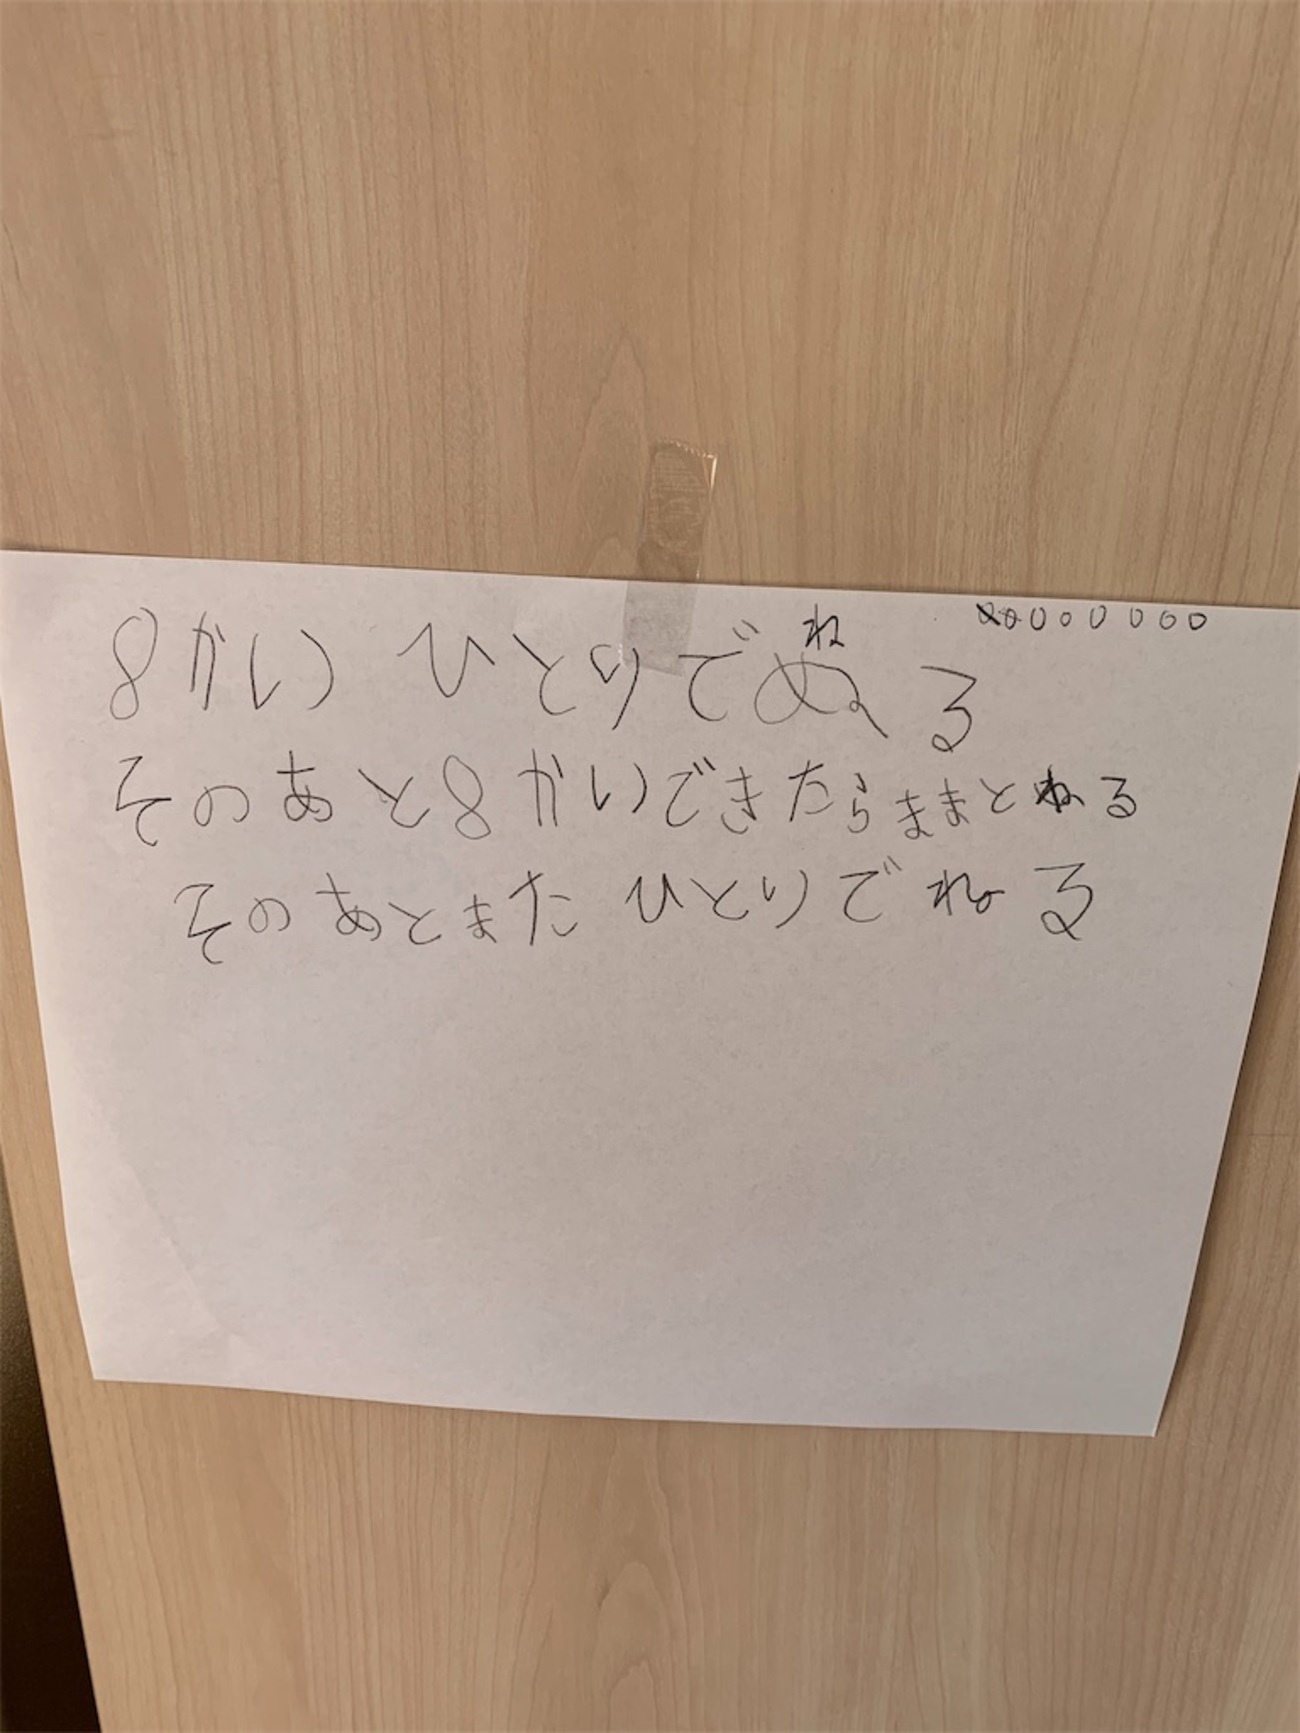 ○○○○○○○○
8かい ひとりでねる
そのあと8かいできたらままとねる
そのあとまた ひとりでねる